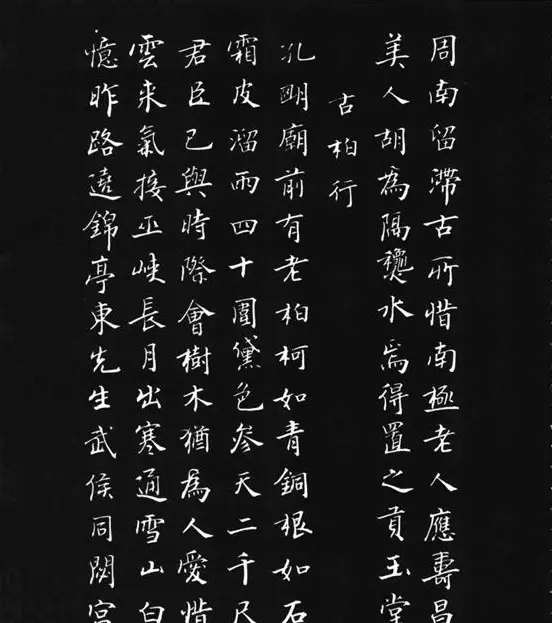 周南留滯古所惜南極老人應壽昌
美人胡為隔龝水焉得置之貢玉堂
古柏行
孔朙廟前有老柏柯如青銅根如石
霜皮溜雨四十圍黛色參天二千尺
君臣已與時際會樹木猶為人愛惜
雲來氣接巫峽長月出寒通雪山白
憶昨路遶錦亭東先生武侯同閟宮